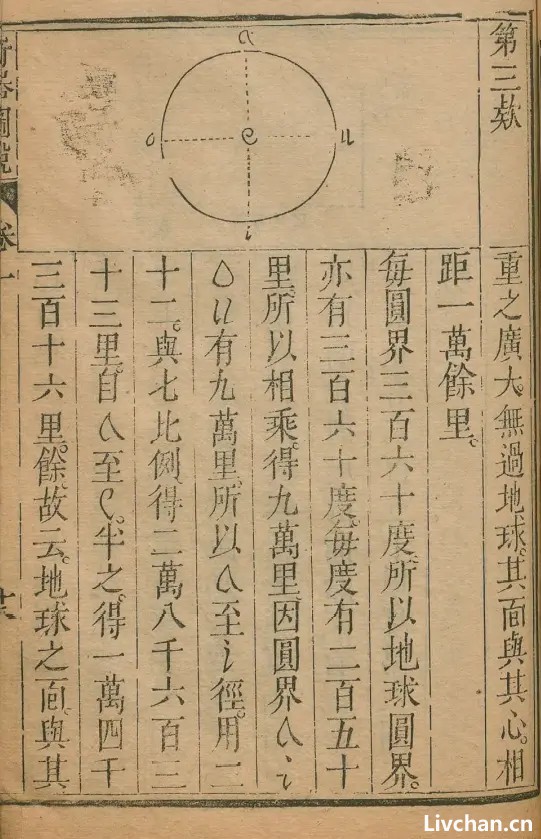 第三欵
a
o
e
u
i
重之廣大。無過地球。其面與其心。相
距一萬餘里。
每圓界三百六十度所以地球圓界。
亦有三百六十度。每度有二百五十
里。所以相乘。得九萬里因圓界a i
o u有九萬里。所以a至i徑。用二
十二。與七比例。得二萬八千六百三
十三里。自a至e。半之。得一萬四千
三百十六里。餘故云。地球之面。與其
奇器圖說
卷一
Livchan.cn